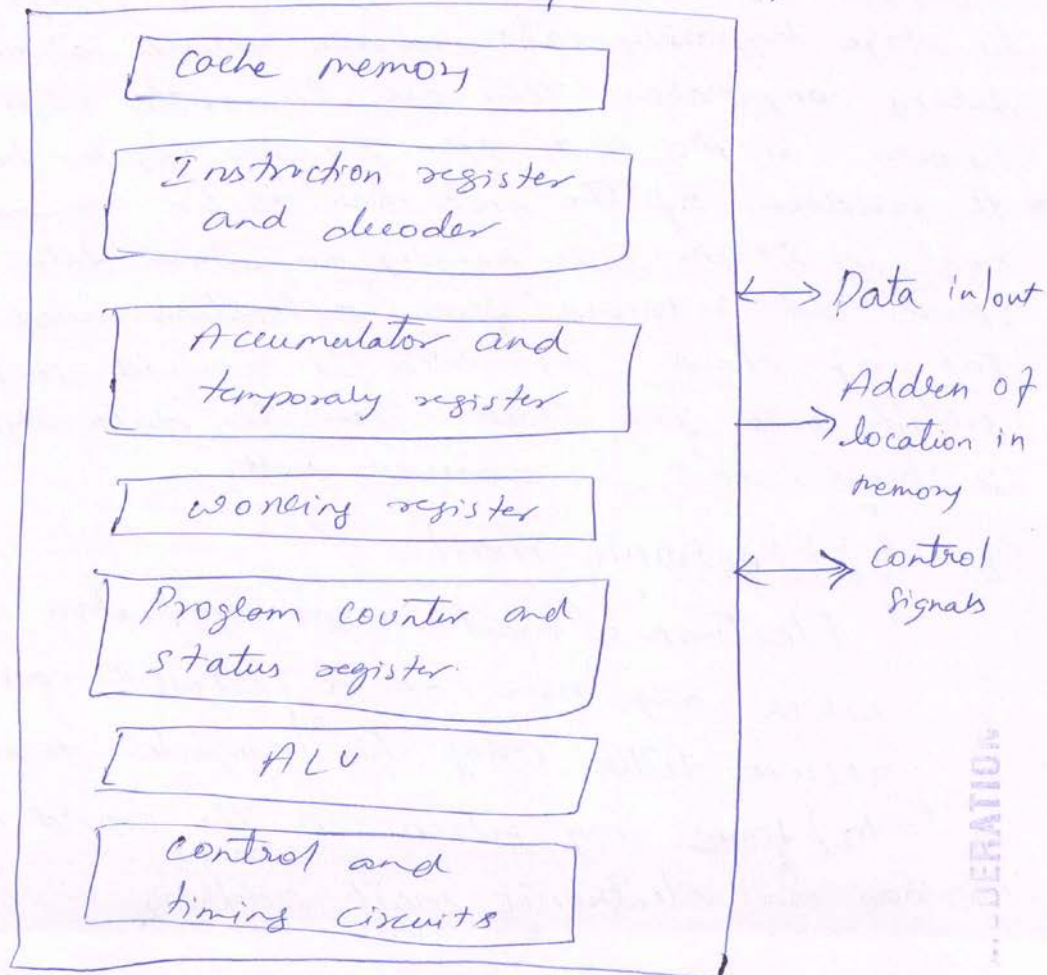 Cache memory
Instruction register
and decoder
Accumulator and
temporaly register
working register
Program counter and
status register
ALU
control and
timing circuits
Data in/out
Address of
location in
memory
control
signals
DERATION